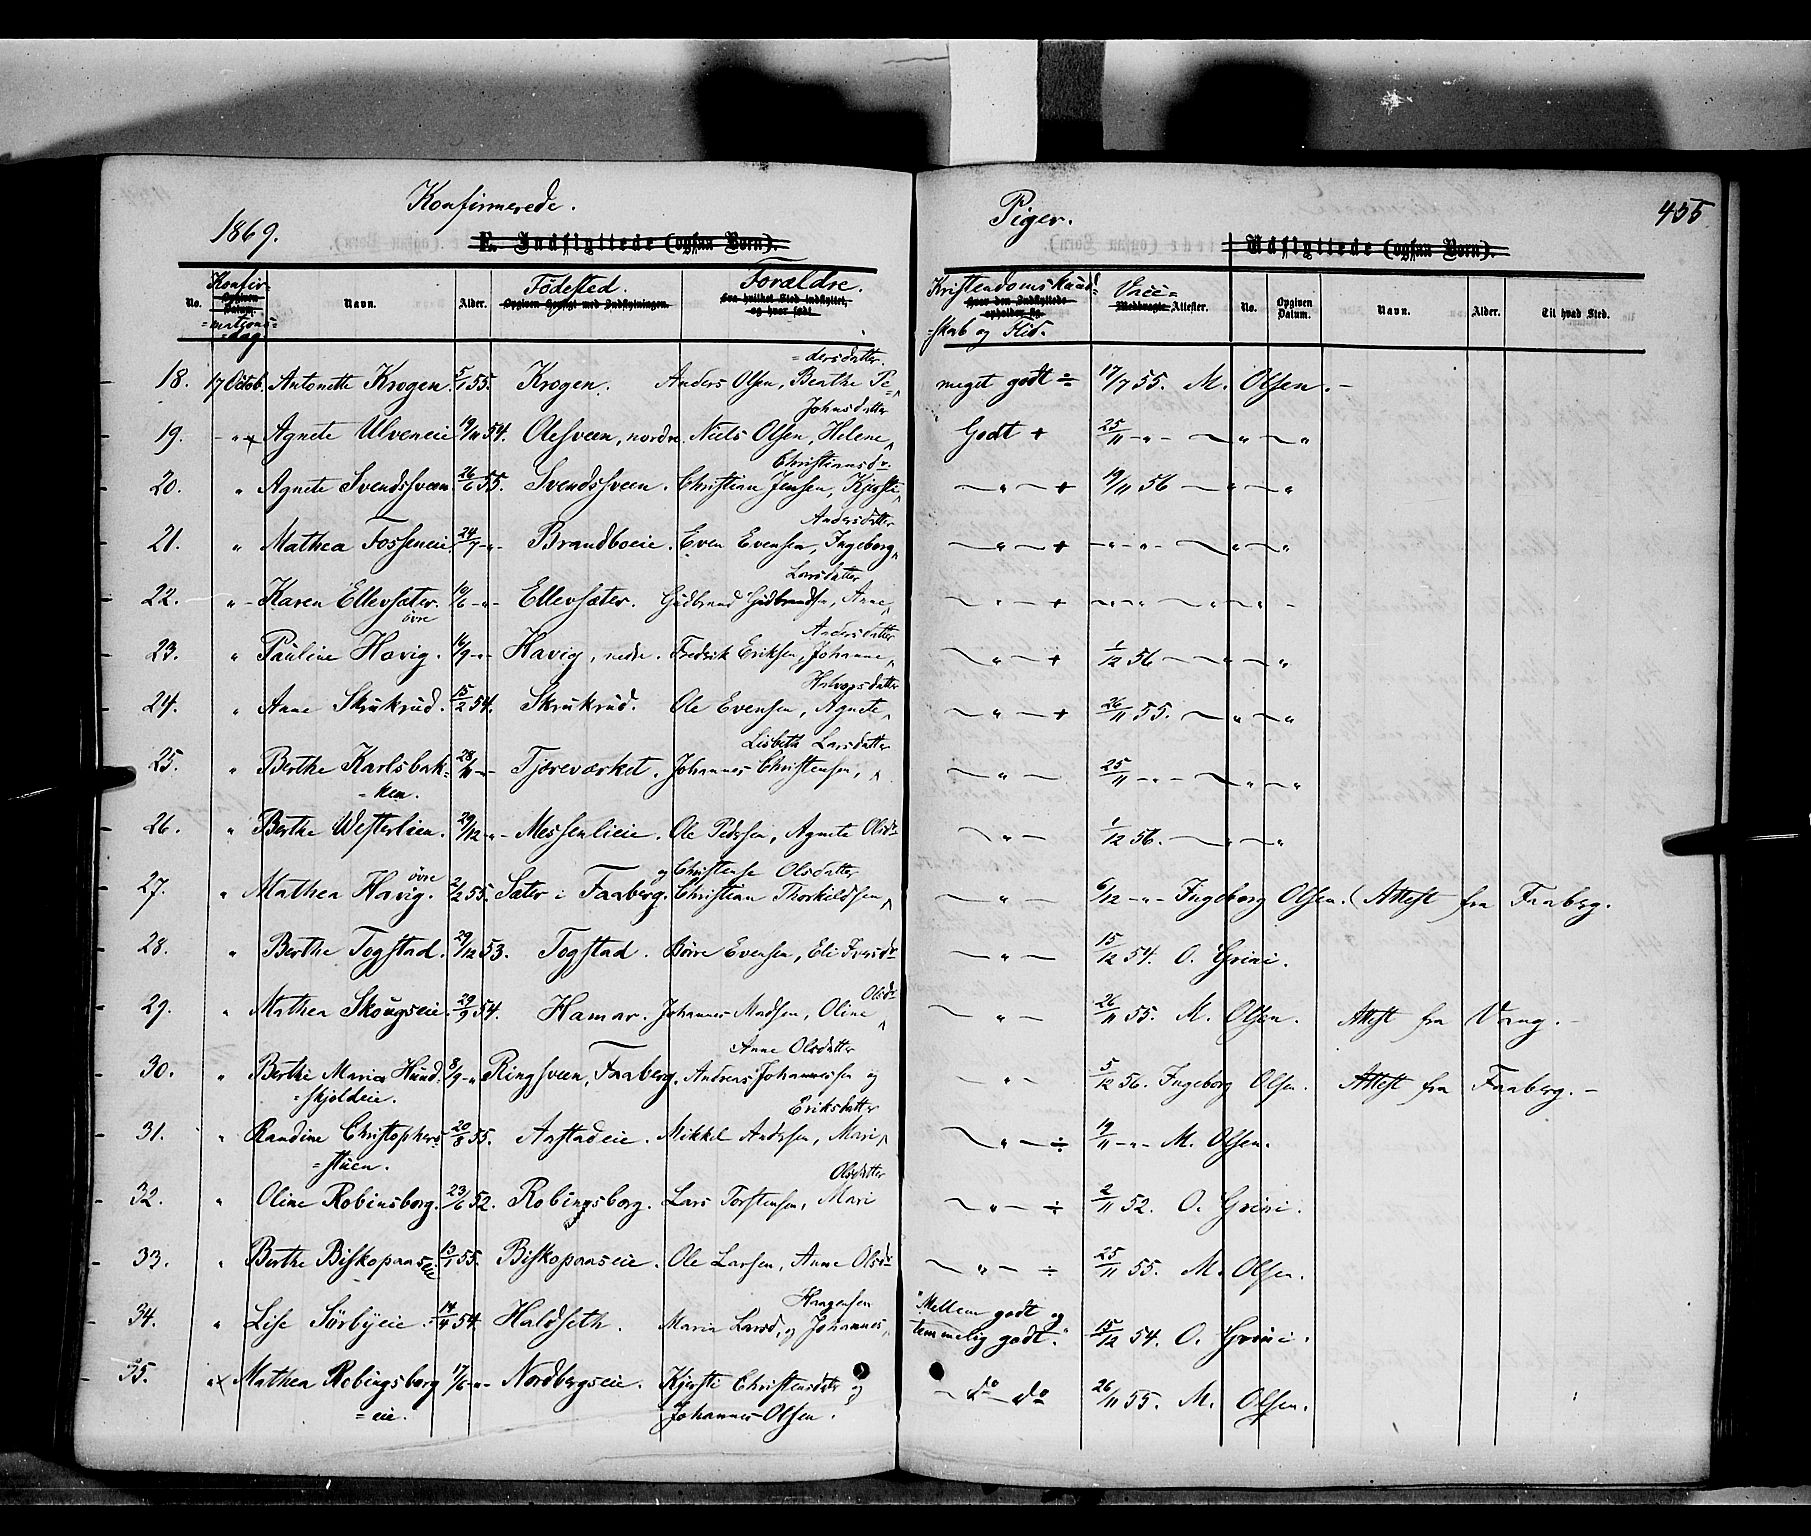 Konfirmerede.
Piger.
455
1869.
E. Indflyttede (ogsaa Børn).
Udflyttede (ogsaa Børn).
No.
Konfir-
Opgiven
Datum.
=mations=
=dag
Navn.
Alder.
Fødested.
Forældre.
fra hvilket Sted indflyttet,
og hvor født
Kristendomskund-
Hvor den Indflyttede
opholder sig.
-skab og Flid.
Vacc=
Medbragte Attester.
No.
Opgiven
Datum.
Navn.
Alder.
Til hvad Sted.
18. 17 Octob. Antonette Krogen. 5/1 55. Krogen. Anders Olsen, Berthe Pe=
=dersdatter
meget godt ÷ 17/7 55. M. Olsen. -
19. - " x Agnete Ulveneie 19/11 54. Olesveen, nordre. Niels Olsen, Helene
Johnsdatter
Godt + 25/11 - " - " - "
20. " Agnete Svendsveen 26/6 55. Svendsveen. Christian Jensen, Kjersti
Christiansdr.
- " - + 19/11 56 - " - "
21. " Mathea Fosseneie 24/7 - " - Brandboeie. Even Evensen, Ingeborg
Andersdatter
- " - + - " - " - " - "
22. " - Karen Ellevsæter. 10/6 - " - Ellevsæter. Gudbrand Gudbrandsen, Anne
Larsdatter
- " - + - " - " - " -
23. " Pauline Høvig. øvre 16/9 - " - Havig, nedre. Fredrik Eriksen, Johanne
Andersdatter
- " - + 1/12 56 - " - "
24. " Anne Skrukrud. 15/2 54. Skrukrud. Ole Evensen, Agnete
Halvorsdatter
- " - + 26/11 55. - " - "
25. " Berthe Karlsbak-
=ken. 28/10 - " - Tjæreværket. Johannes Christensen,
Lisbeth Larsdatter
- " - 25/11 - " - " - "
26. " Berthe Westerlien. 29/12 - " - Messenlieie. Ole Pedersen, Agnete Olsdr
- " - 1/12 56. - " - "
27. " Mathea Havig. øvre 2/2 55. Sæter i Faaberg. Christian Thorkildsen
og Christense Olsdatter
- " - 6/12 - " - Ingeborg Olsen. (Attest fra Faaberg.
28. " Berthe Togstad. 29/12 53. Togstad. Børre Evensen, Eli Iversdr
- " - 15/12 54. O. Grini.
29. " Mathea Skougseie. 29/9 54. Hamar. Johannes Madsen, Oline
Olsdr
- " - 26/11 55. M. Olsen. Attest fra Vang. -
30. " Berthe Maria Hund-
=skjoldeie. 8/9 - " Ringsveen, Faaberg. Andreas Johannessen og
Anne Olsdatter
- " - 5/12 56. Ingeborg Olsen. Attest fra Faaberg. -
31. " Randine Christophers-
=stuen. 20/8 55. Aastadeie. Mikkel Andersen, Mari
Eriksdatter
- " - ÷ 19/11 - " - M. Olsen.
32. " Oline Robinsborg. 23/6 52. Robingsborg. Lars Torstensen, Mari
Olsdatter
- " - ÷ 2/11 52. O. Grini.
33. " Berthe Biskopaaseie. 13/1 55. Biskopaaseie. Ole Larsen, Anne Olsdr
- " - ÷ 25/11 55. M. Olsen.
34. " Lise Sörbyeie. 14/4 54. Haldseth. Maria Larsd. og Johannes
Haagensen
"Mellem godt og
temmelig godt." 15/12 54. O. Grini.
35. " x Mathea Robingsborg
=eie. 17/6 - " - Nordbergseie. Kjersti Christensdatr og
Johannes Olsen.
- do - do 26/11 55. M. Olsen.